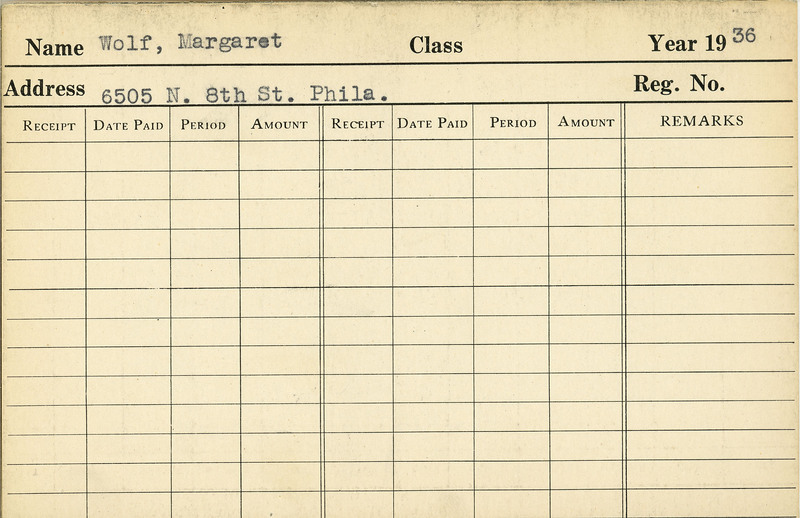 Name Wolf, Margaret Class Year 19 36
Address 6505 N. 8th St. Phila. Reg. No.
RECEIPT DATE PAID PERIOD AMOUNT RECEIPT DATE PAID PERIOD AMOUNT REMARKS